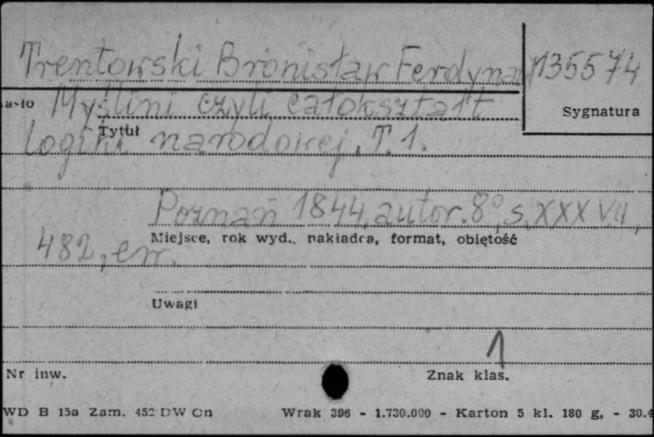 Trentowski Bronisław Ferdynan 135574
asło Myślini czyli całokształt
Sygnatura
Tytuł
logiki narodowej. T. 1.
Poznań 1844, autor. 8°, s. XXXVII,
Miejsce, rok wyd., nakładca, format, objętość
482, err.
Uwagi
1
Nr inw. Znak klas.
WD B 15a Zam. 452 DW Cn Wrak 396 - 1.730.000 - Karton 5 kl. 180 g. - 30.4